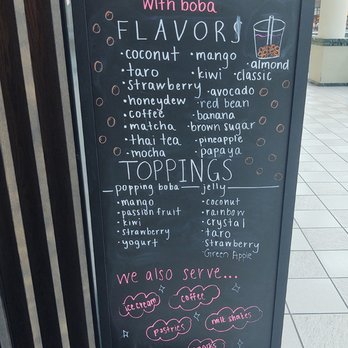 with boba
FLAVORS
·coconut ·mango ·almond
·taro ·kiwi ·classic
·strawberry ·avocado
·honeydew ·red bean
·coffee ·banana
·matcha ·brown sugar
·thai tea ·pineapple
·mocha ·papaya
TOPPINGS
popping boba jelly
·mango ·coconut
·passion fruit ·rainbow
·kiwi ·crystal
·strawberry ·taro
·yogurt ·strawberry
·Green Apple
we also serve...
ice cream
coffee
pastries
milkshakes